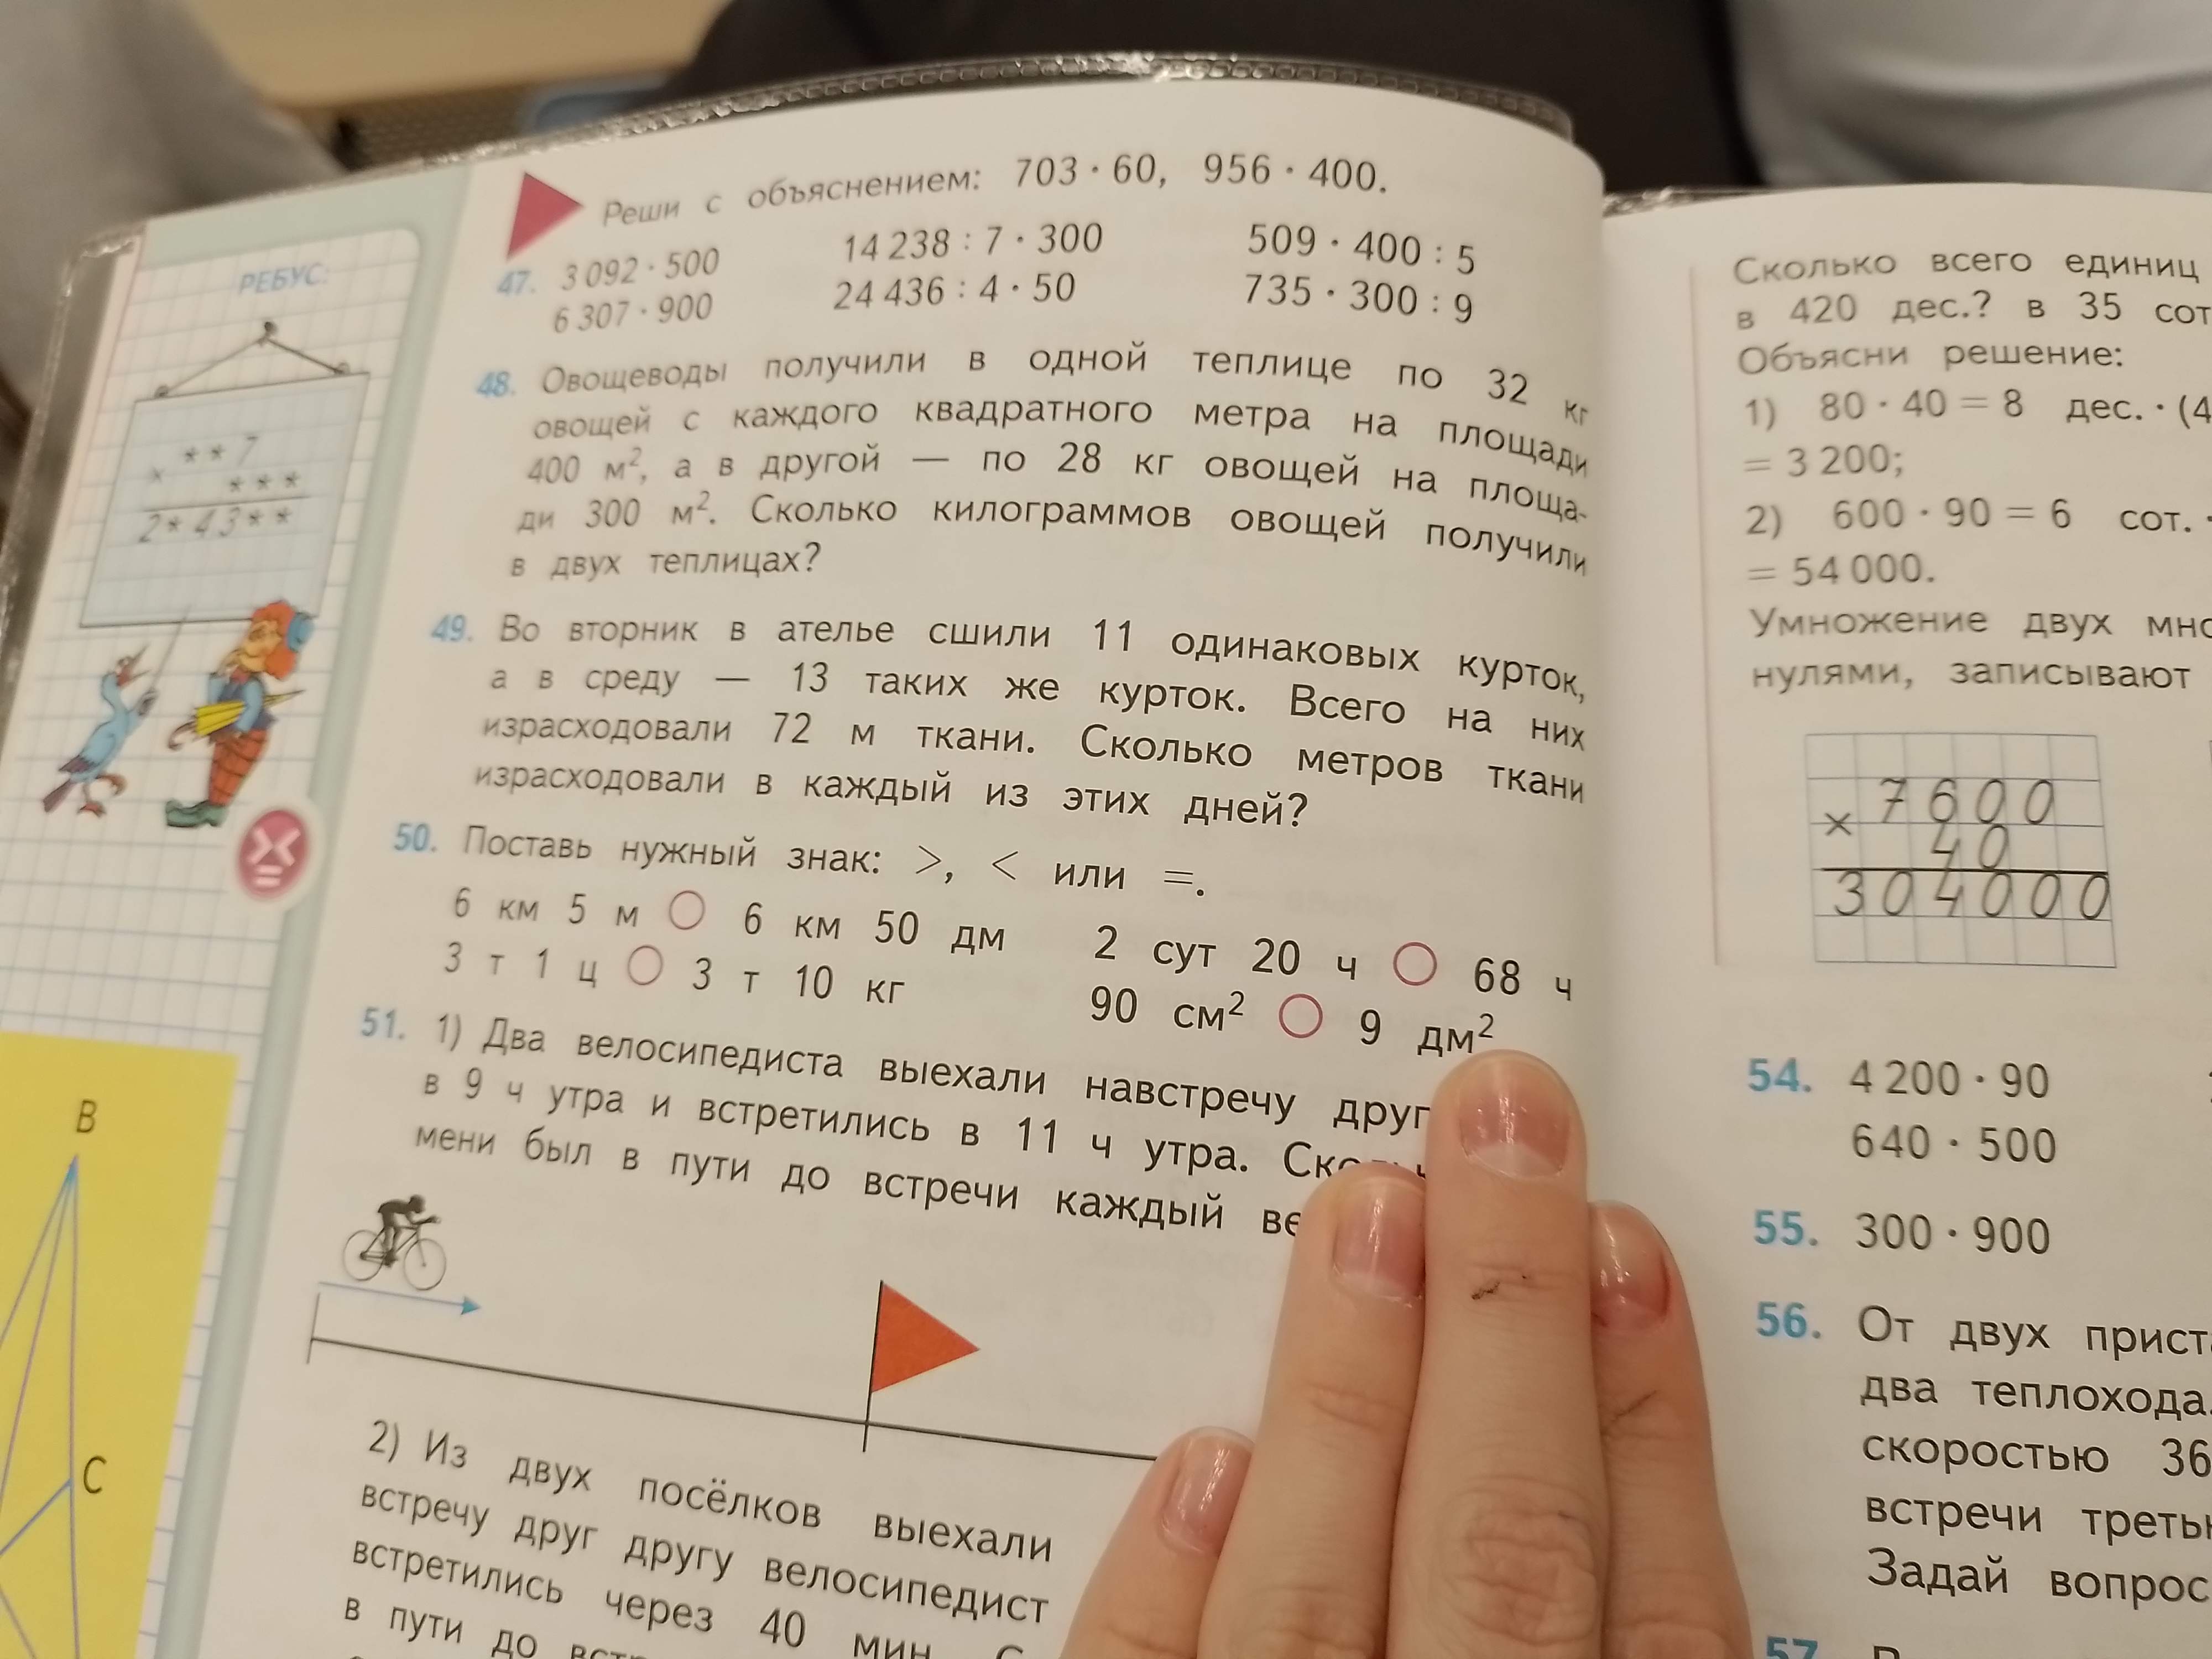 Реши с объяснением: 703 · 60, 956 · 400.
47. 3 092 · 500 14 238 : 7 · 300 509 · 400 : 5
6 307 · 900 24 436 : 4 · 50 735 · 300 : 9
48. Овощеводы получили в одной теплице по 32 кг
овощей с каждого квадратного метра на площади
400 м², а в другой — по 28 кг овощей на площа-
ди 300 м². Сколько килограммов овощей получили
в двух теплицах?
49. Во вторник в ателье сшили 11 одинаковых курток,
а в среду — 13 таких же курток. Всего на них
израсходовали 72 м ткани. Сколько метров ткани
израсходовали в каждый из этих дней?
50. Поставь нужный знак: >, < или =.
6 км 5 м ○ 6 км 50 дм 2 сут 20 ч ○ 68 ч
3 т 1 ц ○ 3 т 10 кг 90 см² ○ 9 дм²
51. 1) Два велосипедиста выехали навстречу друг
в 9 ч утра и встретились в 11 ч утра.
мени был в пути до встречи каждый
2) Из двух посёлков выехали
встречу друг другу велосипедист
встретились через 40 мин.
в пути до
РЕБУС:
* * 7
× * * *
2 * 4 3 * *
B
C
Сколько всего единиц
в 420 дес.? в 35 сот
Объясни решение:
1) 80 · 40 = 8 дес. · (4
= 3 200;
2) 600 · 90 = 6 сот. ·
= 54 000.
Умножение двух
нулями, записывают
7600
× 40
304000
54. 4 200 · 90
640 · 500
55. 300 · 900
56. От двух
два теплохода.
скоростью 36
встречи
Задай вопрос
57.